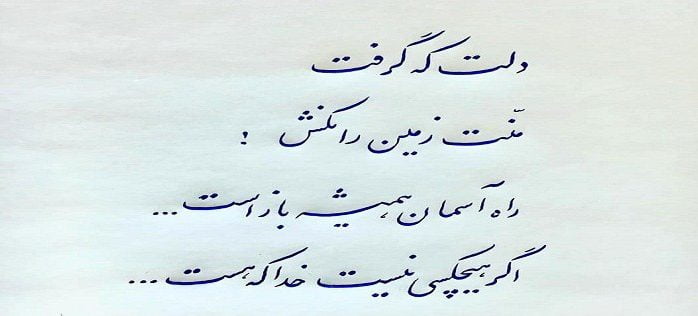 دلت که گرفت
منّت زمین را نکش !
راه آسمان همیشه باز است ...
اگر هیچکسی نیست خدا که هست ...